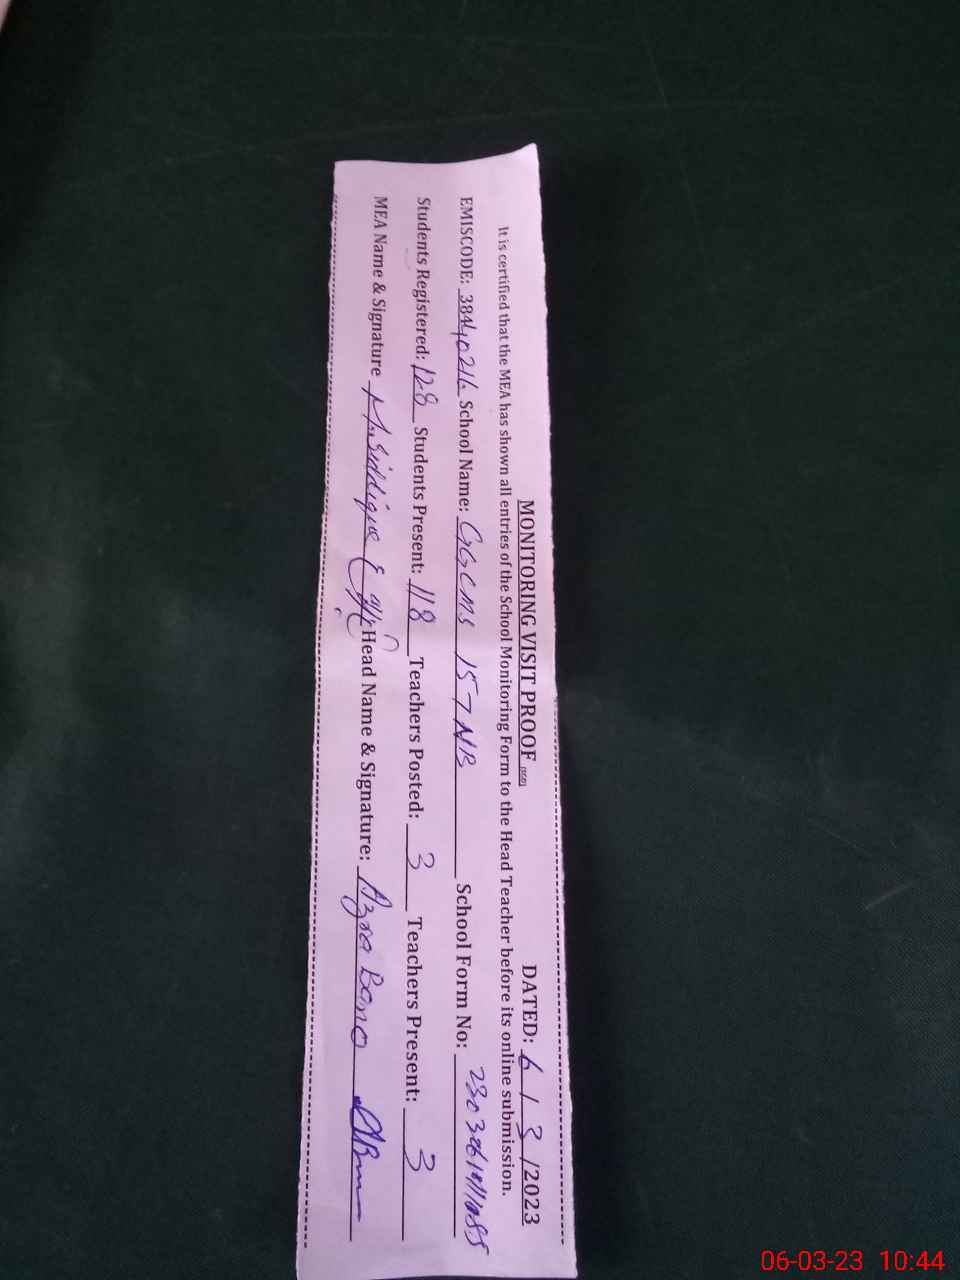 MONITORING VISIT PROOF DATED: 6 / 3 /2023
It is certified that the MEA has shown all entries of the School Monitoring Form to the Head Teacher before its online submission.
EMISCODE: 38440216 School Name: GGCMS 157 NB School Form No:
Students Registered: 128 Students Present: 118 Teachers Posted: 3 Teachers Present: 3
MEA Name & Signature M. Siddique Head Name & Signature: Azra Bano
06-03-23 10:44